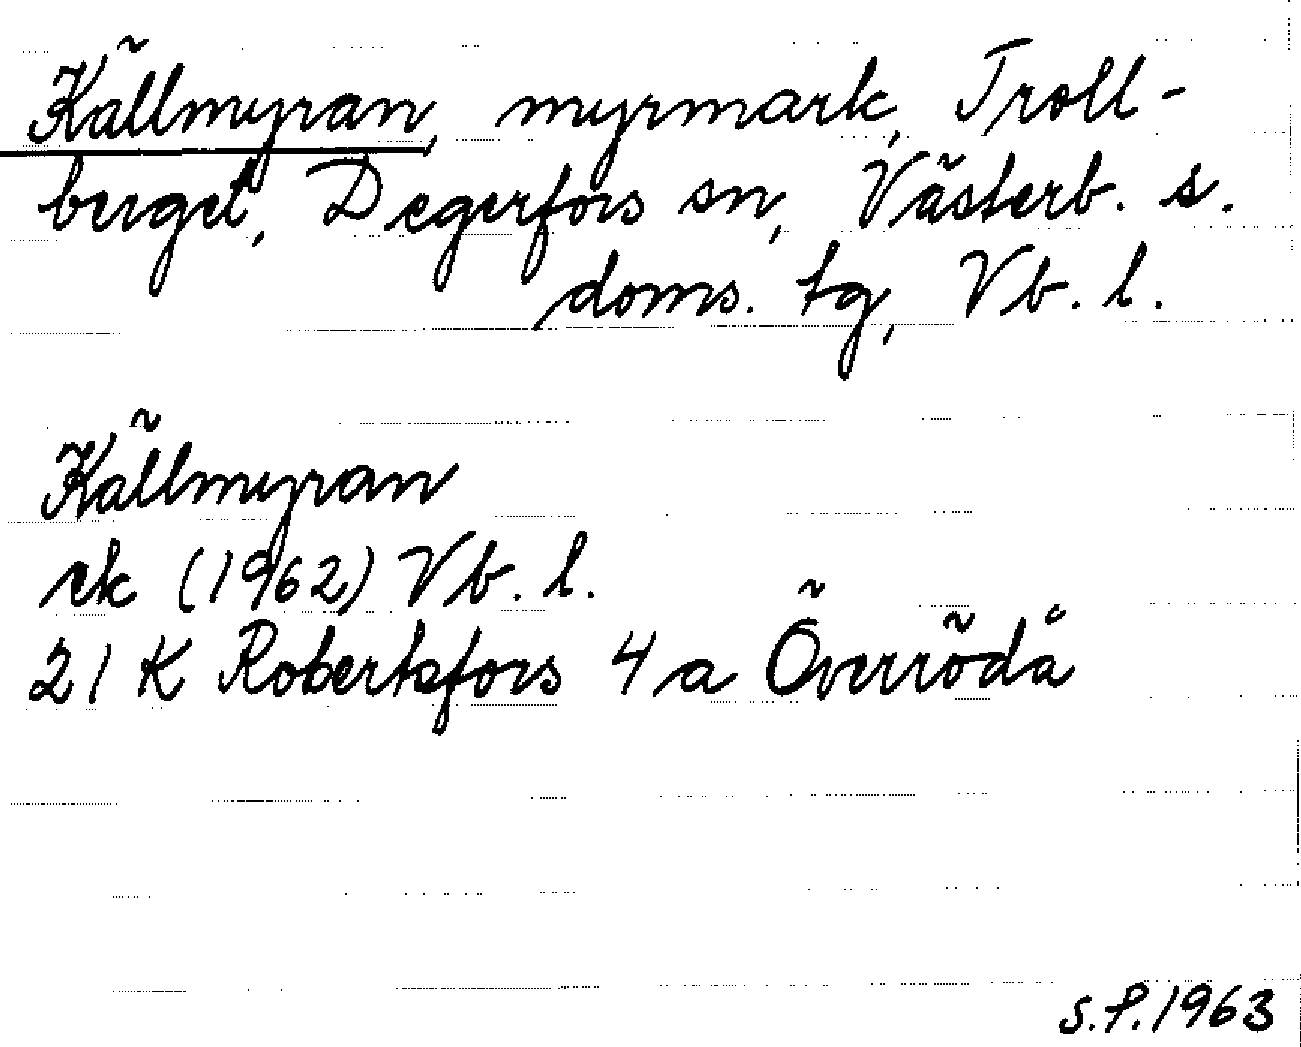 Källmyran, myrmark, Troll-
berget, Degerfors sn, Västerb. s.
doms. tg, Vb. l.
Källmyran
ek (1962) Vb. l.
21 K Robertsfors 4 a Överrödå
S.P. 1963